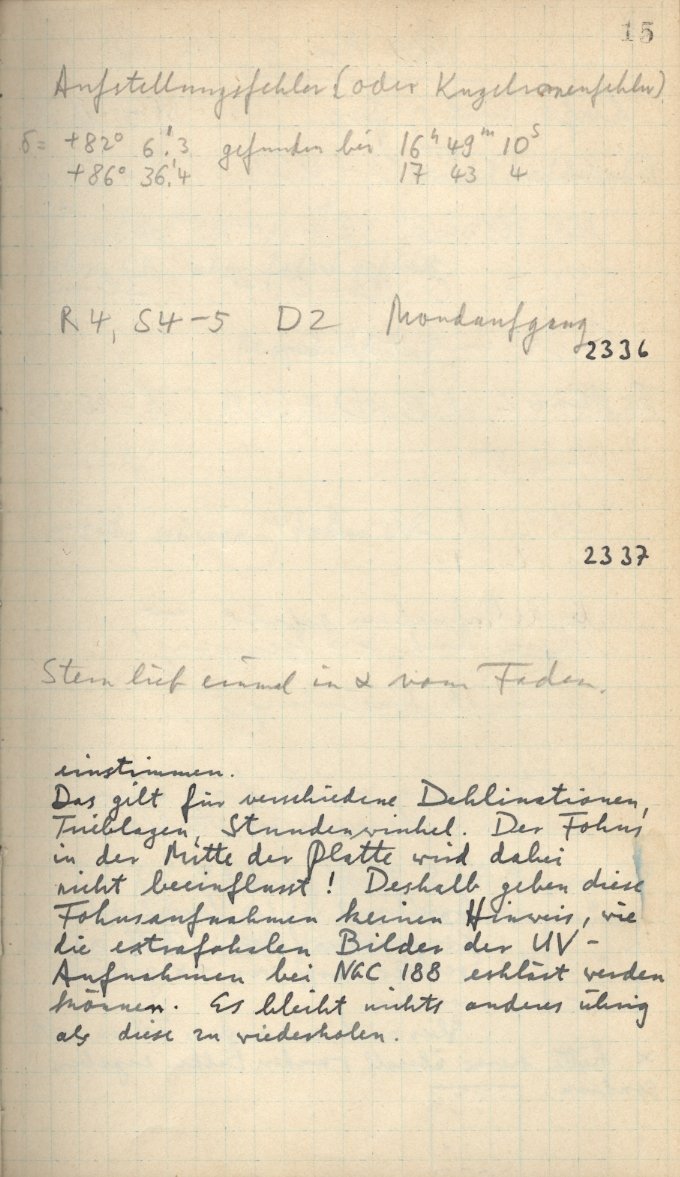 15
Aufstellungsfehler (oder
δ = +82° 6!3 gefunden bei 16ʰ 49ᵐ 10ˢ
+86° 36!4 17 43 4
R4, S4-5 D2 Mondaufgang
2336
2337
Stern lief einmal in α vom Faden.
einstimmen.
Das gilt für verschiedene Deklinationen,
Trieblagen, Stundenwinkel. Der Fokus
in der Mitte der Platte wird dabei
nicht beeinflusst! Deshalb geben diese
Fokusaufnahmen keinen Hinweis, wie
die extrafokalen Bilder der UV-
Aufnahmen bei NGC 188 erklärt werden
können. Es bleibt nichts anderes übrig
als diese zu wiederholen.